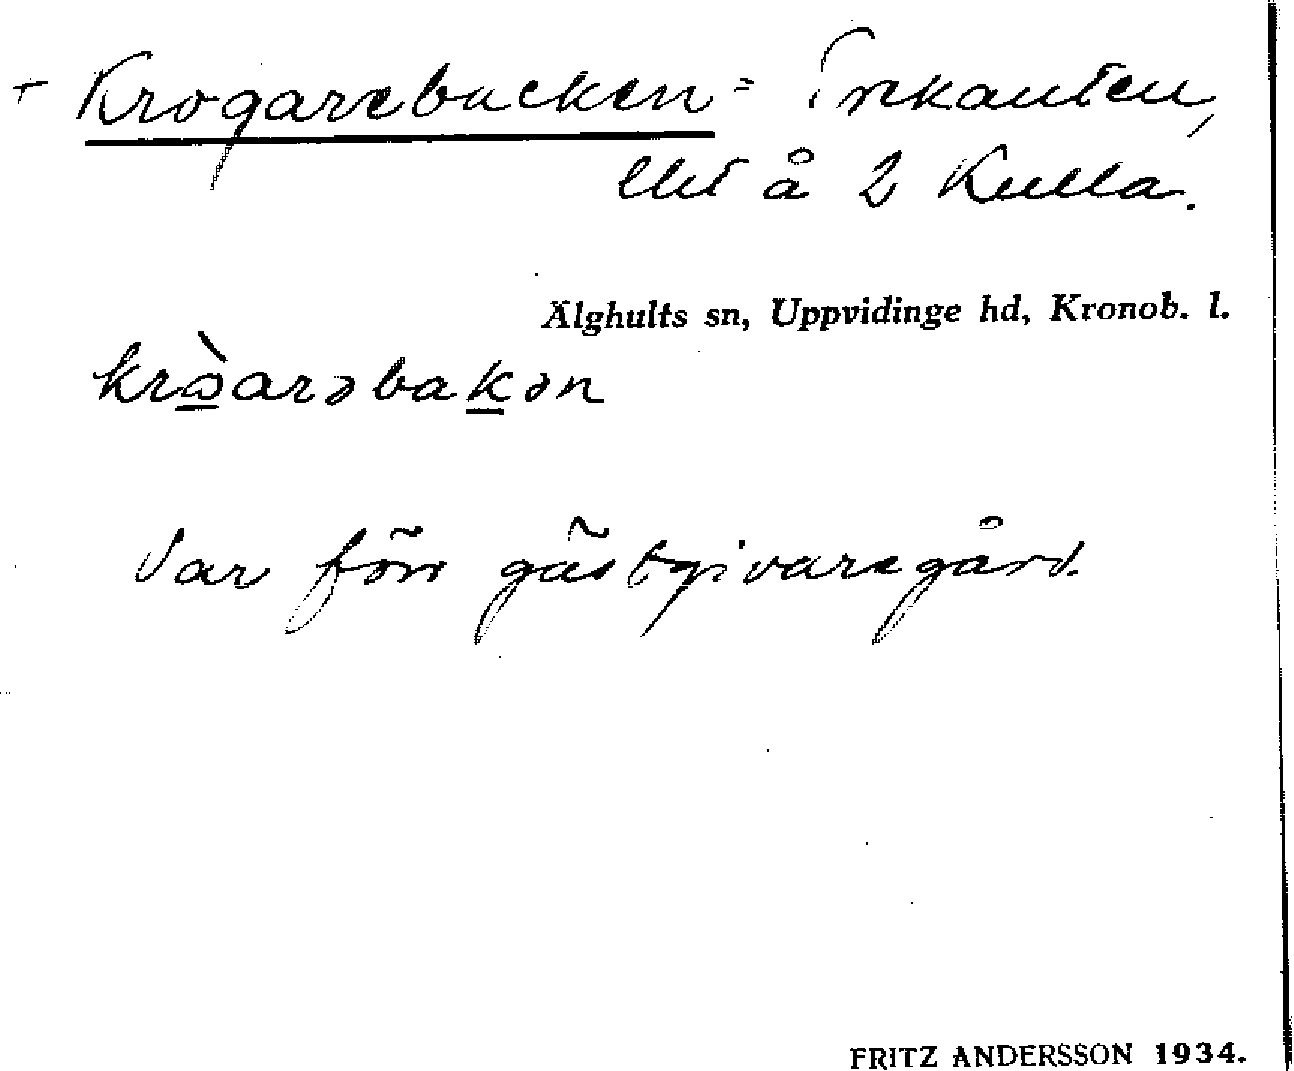 + Krogarebacken = Enkanten,
lht å 2 Kulla.
Älghults sn, Uppvidinge hd, Kronob. l.
krɔ̀arəbakən
Var förr gästgivaregård.
FRITZ ANDERSSON 1934.